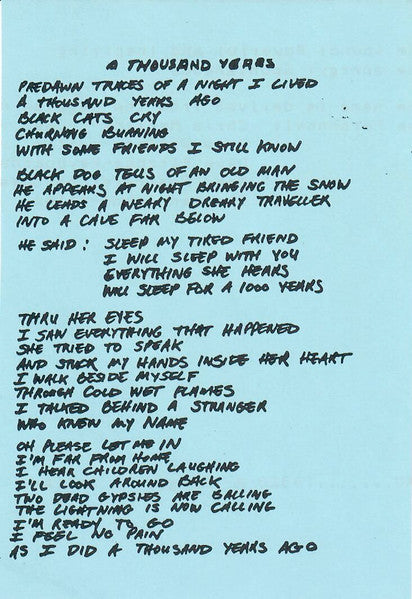 A THOUSAND YEARS
PREDAWN TRACES OF A NIGHT I LIVED
A THOUSAND YEARS AGO
BLACK CATS CRY
CHURNING BURNING
WITH SOME FRIENDS I STILL KNOW
BLACK DOG TELLS OF AN OLD MAN
HE APPEARS AT NIGHT BRINGING THE SNOW
HE LEADS A WEARY DREARY TRAVELLER
INTO A CAVE FAR BELOW
HE SAID: SLEEP MY TIRED FRIEND
I WILL SLEEP WITH YOU
EVERYTHING SHE HEARS
WILL SLEEP FOR A 1000 YEARS
THRU HER EYES
I SAW EVERYTHING THAT HAPPENED
SHE TRIED TO SPEAK
AND STUCK MY HANDS INSIDE HER HEART
I WALK BESIDE MYSELF
THROUGH COLD WET FLAMES
I TALKED BEHIND A STRANGER
WHO KNEW MY NAME
OH PLEASE LET ME IN
I'M FAR FROM HOME
I HEAR CHILDREN LAUGHING
I'LL LOOK AROUND BACK
TWO DEAD GYPSIES ARE BALLING
THE LIGHTNING IS NOW CALLING
I'M READY TO GO
I FEEL NO PAIN
AS I DID A THOUSAND YEARS AGO